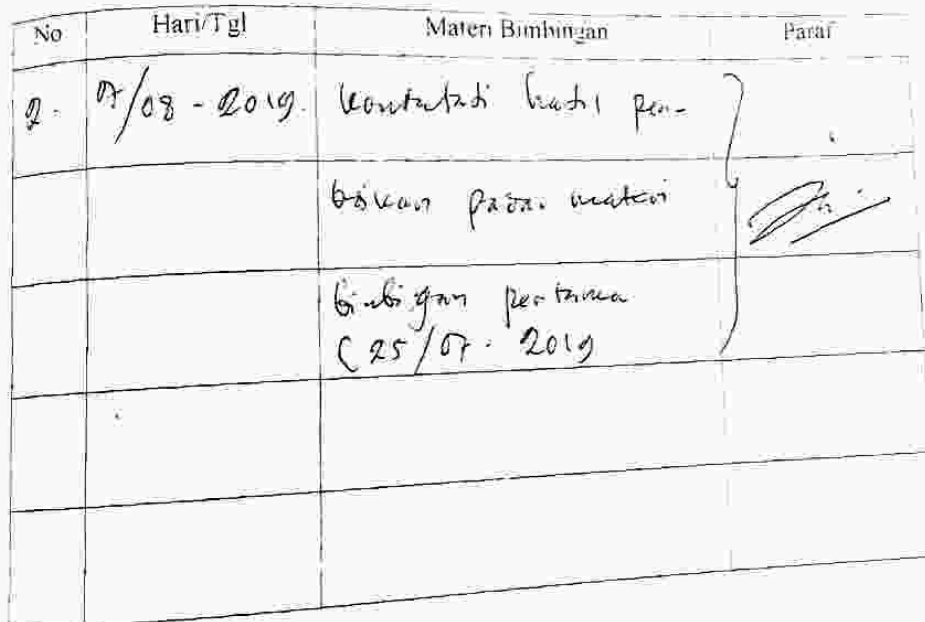 No Hari/Tgl Materi Bimbingan Paraf
2. 07/08 - 2019. konsultasi hasil per-
baikan pada materi
bimbigan pertama
(25/07 - 2019